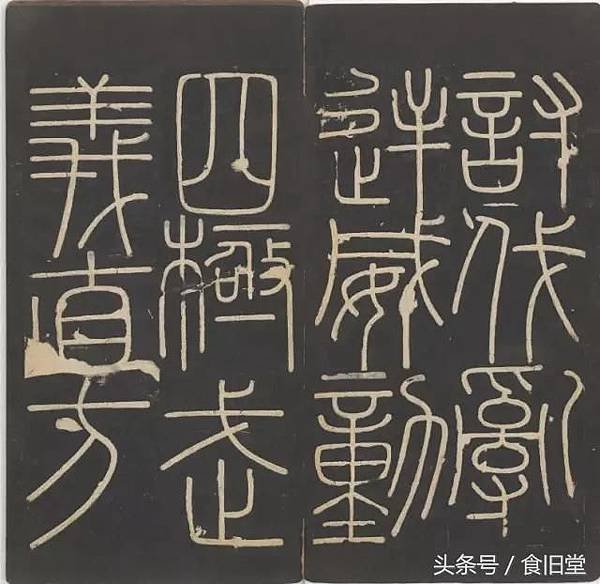 討伐亂
逆威動
四極武
義直方
头条号 / 食旧堂